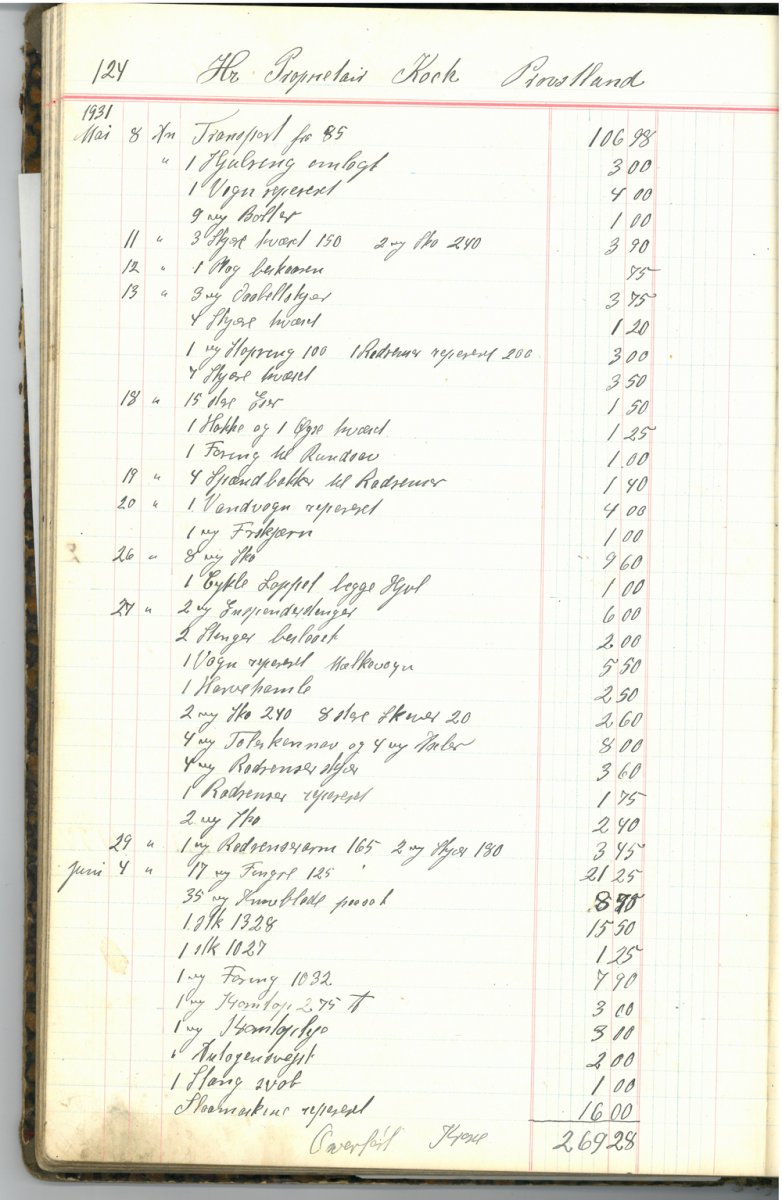 124 Hr Proprietair Kock Provstland
1931
Mai 8 An Transport fra 85 106 98
" 1 Hjulring omlagt 3 00
1 Vogn reperert 4 00
9 ny Bolter 1 00
11 " 3 Skjær hvæst 150 2 ny Sko 240 3 90
12 " 1 Plog beskaaren 75
13 " 3 ny Skjær 3 75
4 Skjær hvæst 1 20
1 ny Kopring 100 1 Radrenser reperert 200 3 00
7 Skjær hvæst 3 50
18 " 15 dse 1 50
1 Hakke og 1 Øgse hvæst 1 25
1 Foring til Rundsav 1 00
19 " 4 Spændbakker til Radrenser 1 40
20 " 1 Vandvogn reperert 4 00
1 ny 1 00
26 " 8 ny Sko 9 60
1 Cykle Lappet begge Hjul 1 00
27 " 2 ny Enspænderstenger 6 00
2 Stenger beslaaet 2 00
1 Vogn reperert Mælkevogn 5 50
1 Harvehamle 2 50
2 ny Sko 240 8 dse Skruer 20 2 60
4 ny og 4 ny 8 00
4 ny Radrenserskjær 3 60
1 Radrenser reperert 1 75
2 ny Sko 2 40
29 " 1 ny Radrenserarm 165 2 ny Skjær 180 3 45
Juni 4 " 17 ny Fingre 125 21 25
35 ny Kniveblade paasat 8 75
1 stk 1328 15 50
1 stk 1027 1 25
1 ny Foring 1032 7 90
1 ny Kramtap 275 3 00
1 ny 3 00
" Autogensvejst 2 00
1 Stang 1 00
Slaamaskine reperert 16 00
Overført Krone 269 28